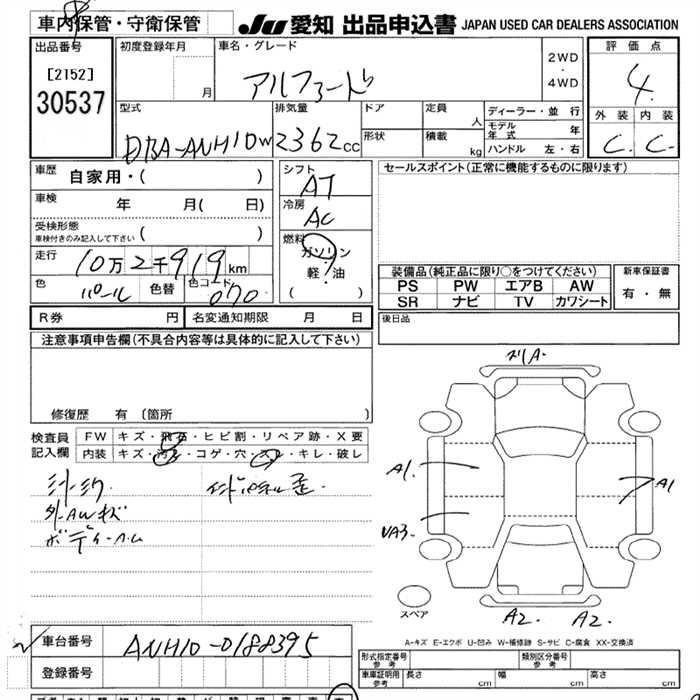 車内保管・守衛保管
JU 愛知 出品申込書 JAPAN USED CAR DEALERS ASSOCIATION
出品番号
[2152]
30537
初度登録年月
月
車名・グレード
アルファード
2WD
・
4WD
評価点
4.
外装 内装
C. C.
型式
DBA-ANH10W
排気量
2362cc
ドア
形状
定員
人
積載
kg
ディーラー・並行
モデル年式 年
ハンドル 左・右
車歴
自家用・( )
車検
年 月( 日)
受検形態
車検付きのみ記入して下さい ( )
走行
10万2千919km
色
パール
色替
色コード
070
シフト
AT
冷房
AC
燃料
ガソリン
軽・油
( )
セールスポイント(正常に機能するものに限ります)
装備品(純正品に限り○をつけてください)
PS PW エアB AW
SR ナビ TV カワシート
新車保証書
有・無
R券 円 名変通知期限 月 日
後日品
注意事項申告欄(不具合内容等は具体的に記入して下さい)
修復歴 有 〔箇所 〕
検査員
記入欄
FW キズ・飛石・ヒビ割・リペア跡・X要
内装 キズ・汚れ・コゲ・穴・スレ・キレ・破レ
外AWキズ
A1.
A1
VA3.
スペア
A2. A2.
A-キズ E-エクボ U-凹み W-補修跡 S-サビ C-腐食 XX-交換済
車台番号
ANH10-0188395
登録番号
形式指定番号
参考
類別区分番号
参考
車庫証明用
参考
長さ 幅 高さ
cm cm cm